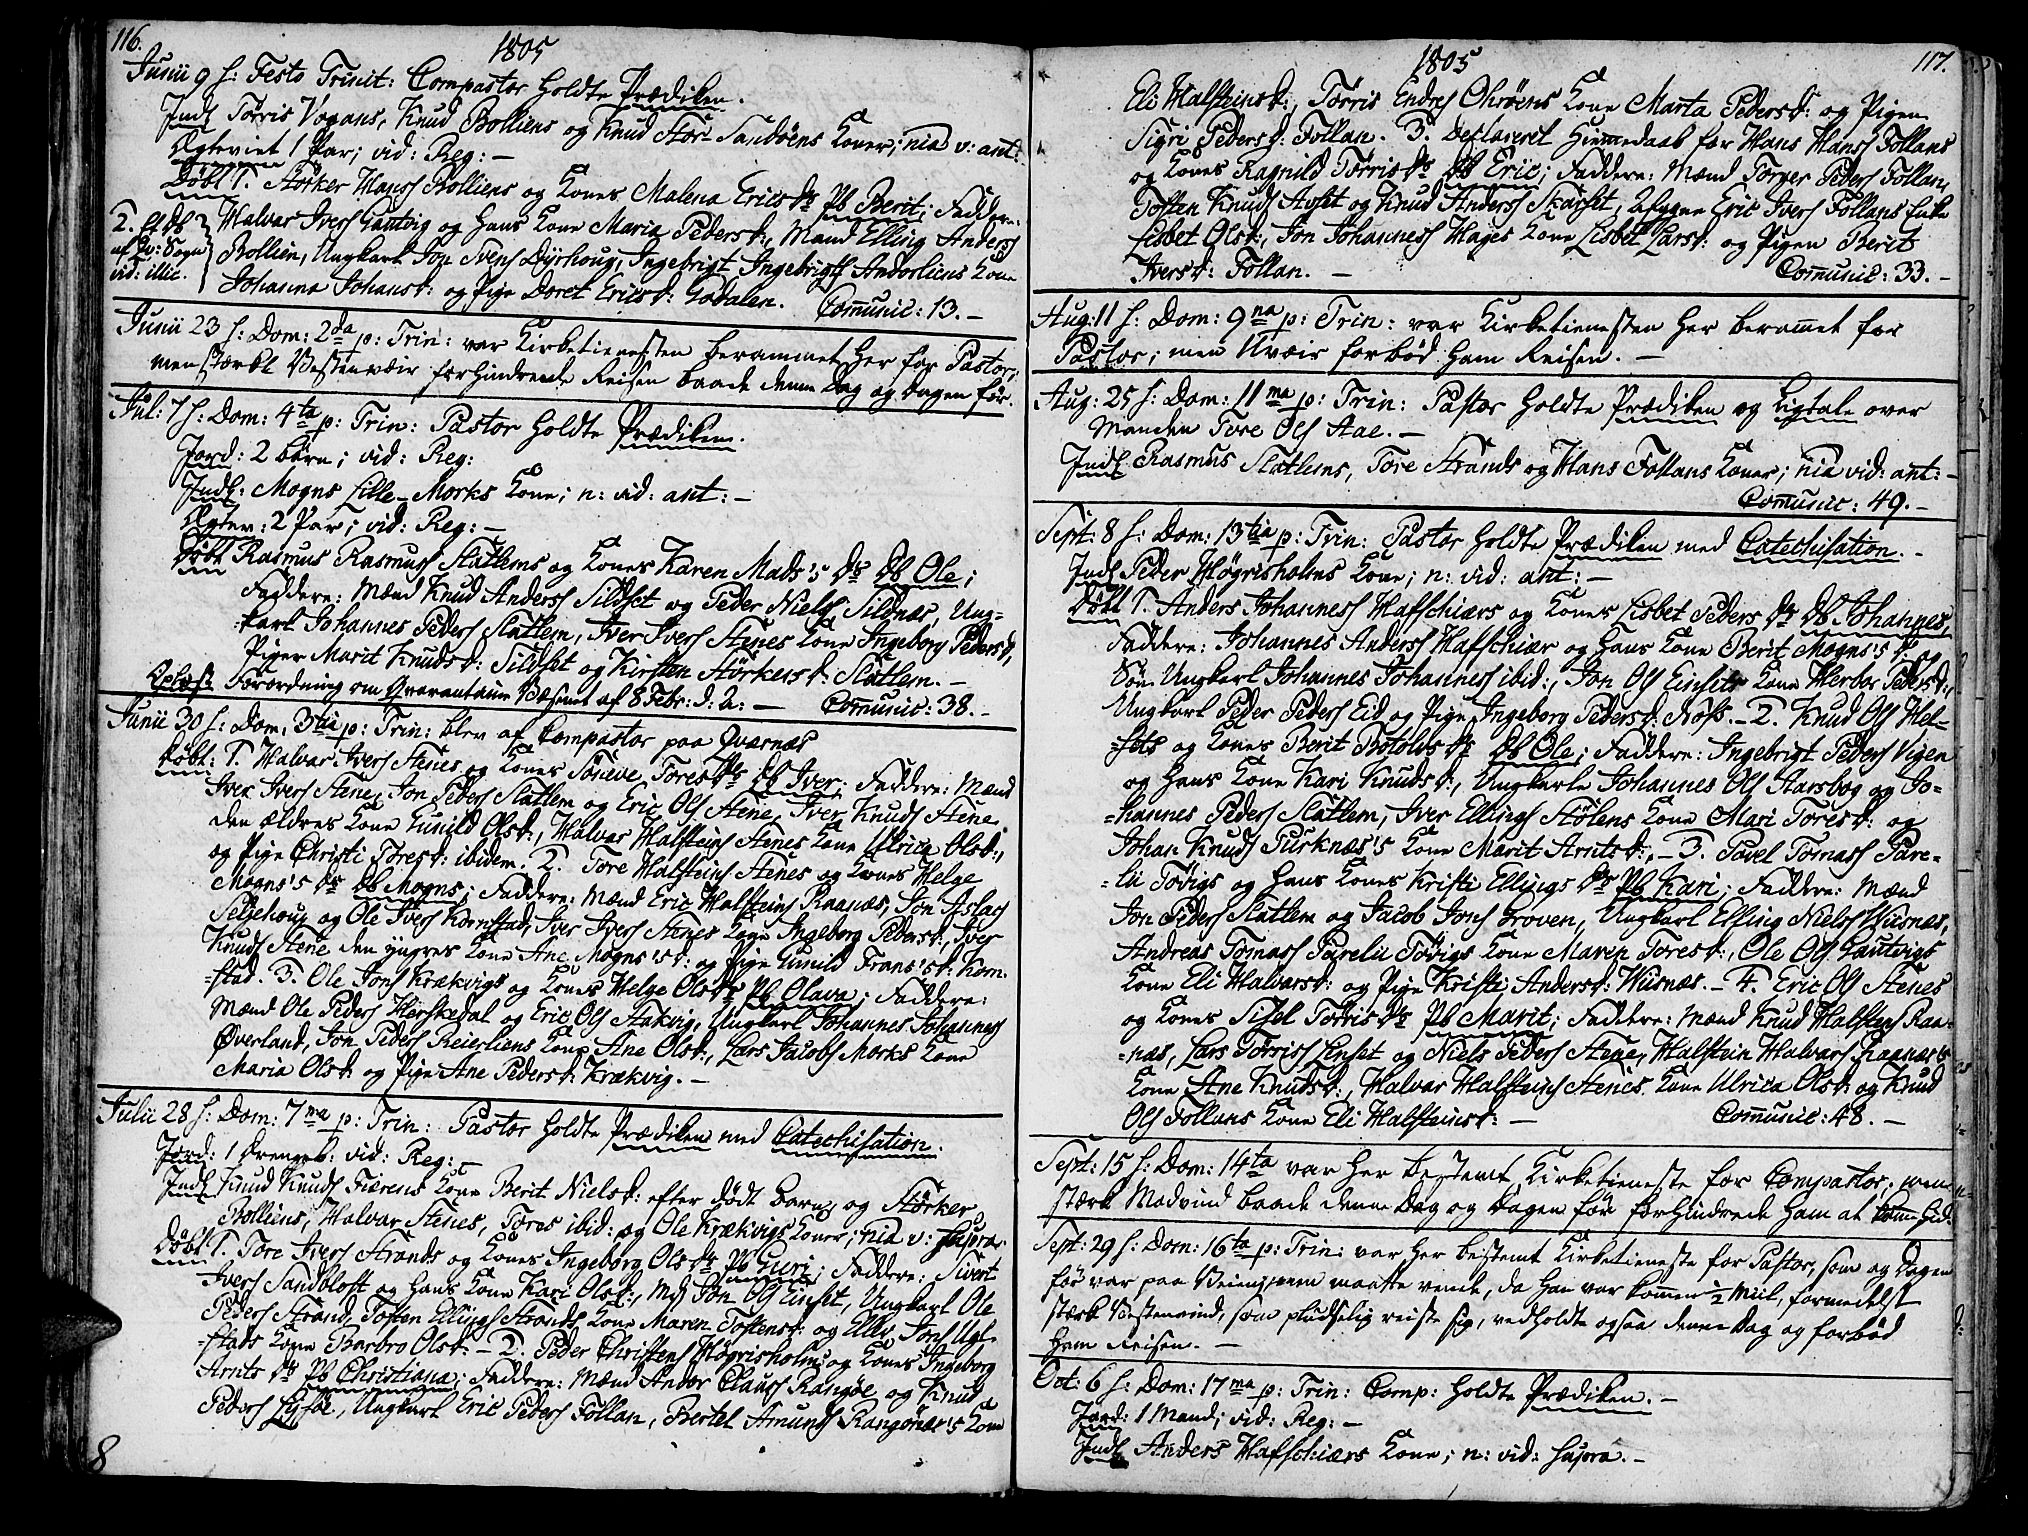 116.
1805
Junii 9 h: Festo Trinit: Compastor holdte Prædiken.
Indl Torris Vogans, Knud Bolliens og Knud Stor-Sandöens Koner; nia v: ant:
Ægteviet 1 Par; vid: Reg: —
Döbt 1. Störker Hans Bolliens og Kones Malena Erics Dr Pb Berit; Faddere:
Halvar Ivers Gautvig og hans Kone Maria Pedersd:, Mand Elling Anders
Bollien, Ungkarl Jon Svens Dyrhoug, Ingebrigt Ingebrigts Andorliens Kone
Johanna Johansd: og Pige Doret Ericsd: Godalen. Comunic: 13. —
2. et Db
af Qv: Sogn
vid: illic.
Junii 23 h: Dom: 2da p: Trin: var Kirketienesten berammet her for Pastor,
men stærkt Vestenvæir forhindrede Reisen baade denne Dag og Dagen för.
Jul: 7 h: Dom: 4ta p: Trin: Pastor holdte Prædiken.
Jord: 2 börn; vid: Reg:
Indl: Mogns Lille-Morks Kone; n: vid: ant: —
Ægtev: 2 Par; vid: Reg: —
Döbt Rasmus Rasmuss Slatlems og Kones Karen Mads's Dr Db Ole;
Faddere: Mænd Knud Anderss Sildset og Peder Niels Sildnæs, Ung-
-karl Johannes Peders Slatlem, Iver Ivers Stenes Kone Ingeborg Pedersd:,
Piger Marit Knudsd: Sildset og Kirsten Störkersd: Slatlem. —
Oplæst Forordning om Qvarantaine Væsenet af 8 Febr: d: A: — Comunic: 38. —
Junii 30 h: Dom: 3tia p: Trin: blev af Compastor paa Qværnæs
Döbt: 1. Halvar Ivers Stenes og Kones Söneve Tores Dr Db Iver; Faddere: Mænd
Iver Ivers Stene, Jon Peders Slatlem og Eric Ols Stene, Iver Knuds Stene
den ældres Kone Gunild Olsd:, Halvar Halsteins Stenes Kone Ulrica Olsd:,
og Pige Christi Toresd: ibidem. 2. Tore Halsteins Stenes og Kones Helge
Mogns's Dr Db Mogns; Faddere: Mænd Eric Halsteins Raanæs, Jon Aslacs
Seljehoug og Ole Ivers Kornstad, Iver Ivers Stenes Kone Ingeborg Pedersd:, Iver
Knuds Stene den yngres Kone Ane Mogns'sd: og Pige Gunild Frans'sd: Korn-
-stad. 3. Ole Jons Krækvigs og Kones Helge Ols Dr Pb Olava; Faddere:
Mænd Ole Peders Herskedal og Eric Ols Stakvig, Ungkarl Johannes Johanness
Överland, Jon Peders Reierliens Kone Ane Olsd:, Lars Jacobs Morks Kone
Maria Olsd: og Pige Ane Pedersd: Krækvig. —
Julii 28 h: Dom: 7ma p: Trin: Pastor holdte Prædiken med Catechisation.
Jord: 1 Drengeb: vid: Reg: —
Indl Knud Knuds Fiærens Kone Berit Nielsd: efter dödt barn, og Störker
Bolliens, Halvar Stenes, Tores ibid: og Ole Krækvigs Koner; nia v: supra.
Döbt 1. Tore Ivers Strands og Kones Ingeborg Ols Dr Pb Guri; Faddere: Sivert
Ivers Sandbloft og hans Kone Kari Olsd:, Md Jon Ols Einset, Ungkarl Ole
Peders Strand, Tosten Ellings Strands Kone Maren Tostensd: og Ellev Jons Ugl-
-stads Kone Barbro Olsd: — 2. Peder Christens Högrisholms og Kones Ingeborg
Arnts Dr Pb Christiana; Faddere: Mænd Andor Clauss Rangöe og Knud
Peders Lysöe, Ungkarl Eric Peders Follan, Bertel Amunds Rangönæs's Kone
8
1805
117.
Eli Halsteinsd:, Torris Endres Ohröens Kone Marta Pedersd: og Pigen
Sigri Pedersd: Follan. 3. declareret Hiemmedaab for Hans Hanss Follans
og Kones Ragnild Torris Dr Db Eric; Faddere: Mænd Torger Peders Follan,
Tosten Knuds Aaset og Knud Anderss Skarset, Afgagne Eric Ivers Follans Enke
Lisbet Olsd:, Jon Johanness Hages Kone Lisbet Larsd: og Pigen Berit
Iversd: Follan. — Comunic: 33. —
Aug: 11 h: Dom: 9na p: Trin: var Kirketienesten her berammet for
Pastor; men Uvæir forbød ham Reisen. —
Aug: 25 h: Dom: 11ma p: Trin: Pastor holdte Prædiken og Ligtale over
Manden Tore Ols Aae. —
Indl Rasmus Slatlems, Tore Strands og Hans Follans Koner; nia vid: ant: —
Comunic: 49. —
Sept: 8 h: Dom: 13tia p: Trin: Pastor holdte Prædiken med Catechisation. —
Indl Peder Högrisholms Kone; n: vid: ant: —
Döbt 1. Anders Johanness Hafskiærs og Kones Lisbet Peders Dr Db Johannes,
Faddere: Johannes Anderss Hafskiær og hans Kone Berit Mogns's d:, og
Sön Ungkarl Johannes Johanness ibid:, Jon Ols Einsets Kone Herbor Pedersd:,
Ungkarl Peder Peders Eid og Pige Ingeborg Pedersd: Röss. — 2. Knud Ols Hel-
-sets og Kones Berit Botolvs Dr Db Ole; Faddere: Ingebrigt Peders Vigen
og hans Kone Kari Knudsd:, Ungkarle Johannes Ols Starsbog og Jo-
-hannes Peders Slatlem, Iver Ellings Stölens Kone Mari Toresd: og
Johan Knuds Pursknæs's Kone Marit Arntsd:, — 3. Pavel Tomass Pare-
-lii Tövigs og hans Kones Kristi Ellings Dr Pb Kari; Faddere: Mænd
Jon Peders Slatlem og Jacob Jons Groven, Ungkarl Elling Niels Wiisnæs,
Andreas Tomass Parelii Tövigs Kone Maren Toresd:, Ole Ols Gautvigs
Kone Eli Halvarsd: og Pige Kristi Andersd: Wiisnæs. — 4. Eric Ols Stenes
og Kones Sisel Torris Dr Pb Marit; Faddere: Mænd Knud Halsteins Raa-
-næs, Lars Törriss Linset og Niels Peders Stene, Halstein Halvars Raanæs's
Kone Ane Knudsd:, Halvar Halsteins Stenes Kone Ulrica Olsd: og Knud
Ols Follans Kone Eli Halsteinsd: — Comunic: 48. —
Sept: 15 h: Dom: 14ta var her bestemt Kirketieneste for Compastor, men
stærk Modvind baade denne Dag og Dagen för forhindrede ham at kome hid.
Sept: 29 h: Dom: 16ta p: Trin: var her bestemt Kirketieneste for Pastor, som og Dagen
för var paa Veien, men maatte vende, da han var kommen ½ Miil, formedelst
stærk Vestenvind, som pludselig reiste sig, vedholdte ogsaa denne Dag og forbød
ham Reisen. —
Oct: 6 h: Dom: 17ma p: Trin: Comp: holdte Prædiken. —
Jord: 1 Mand; vid: Reg: —
Indl Anders Hafskiærs Kone; n: vid: supra. —